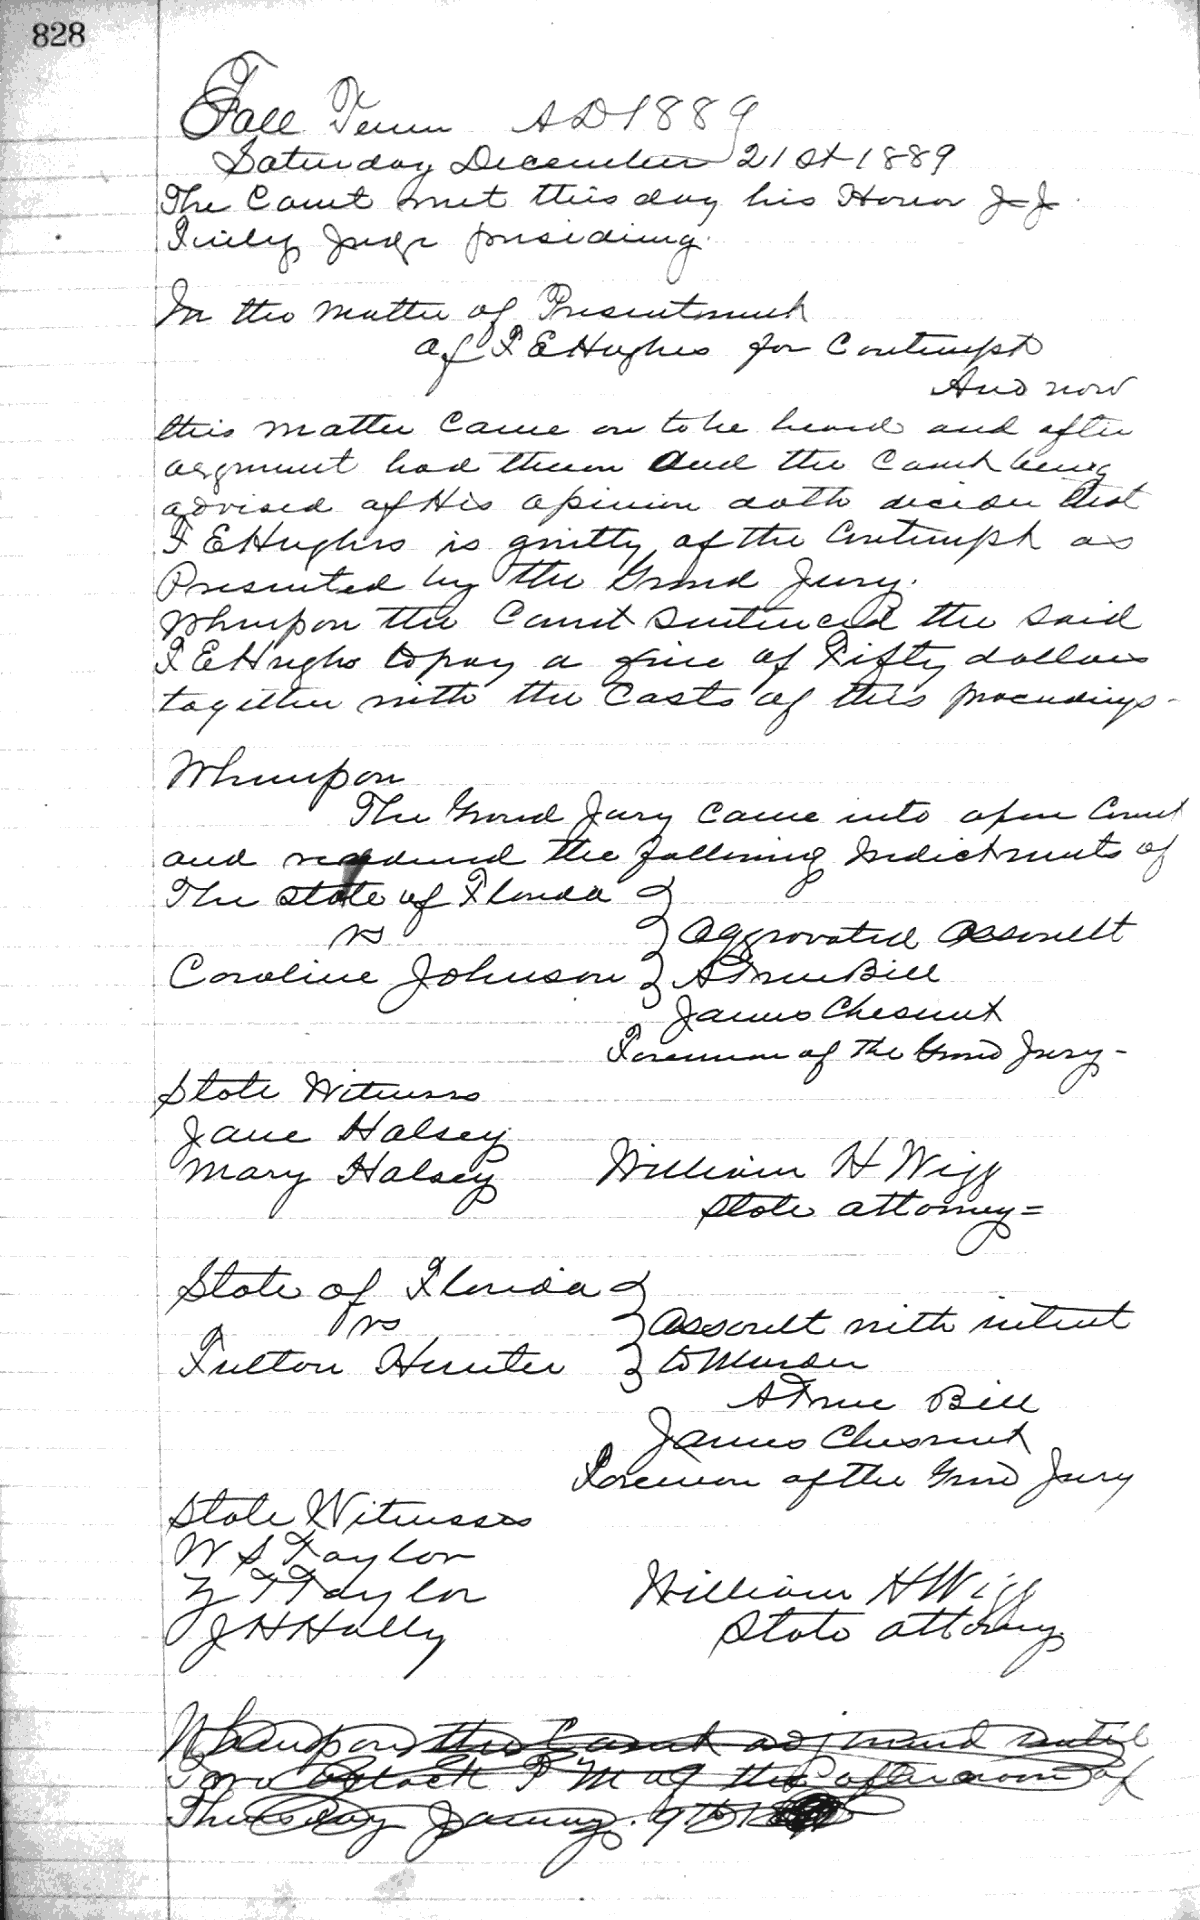 828
Fall Term AD 1889
Saturday December 21st 1889
The Court met this day his Honor J J
Finley Judge presiding.
In the matter of Presentment
of F E Hughes for Contempt
And now
this matter Came on to be heard and after
argument had thereon and the Court being
advised of His opinion doth decide that
F E Hughes is guilty of the Contempt as
Presented by the Grand Jury.
Whereupon the Court Sentenced the said
F E Hughes to pay a fine of Fifty dollars
together with the Costs of this proceedings -
Whereupon
The Grand Jury Came into open Court
and rendered the following Indictments of
The State of Florida
vs
Caroline Johnson
aggravated assault
A True Bill
James Chesnut
Foreman of the Grand Jury -
State Witness
Jane Halsey
Mary Halsey
William H Wigg
State attorney =
State of Florida
vs
Fulton Hunter
assault with intent
to Murder
A True Bill
James Chesnut
Foreman of the Grand Jury
State Witnesses
W S Taylor
Z T Taylor
J H Hally
William H Wigg
State attorney
Whereupon the Court adjourned until
Two Oclock P M of the afternoon of
Thursday January 9th